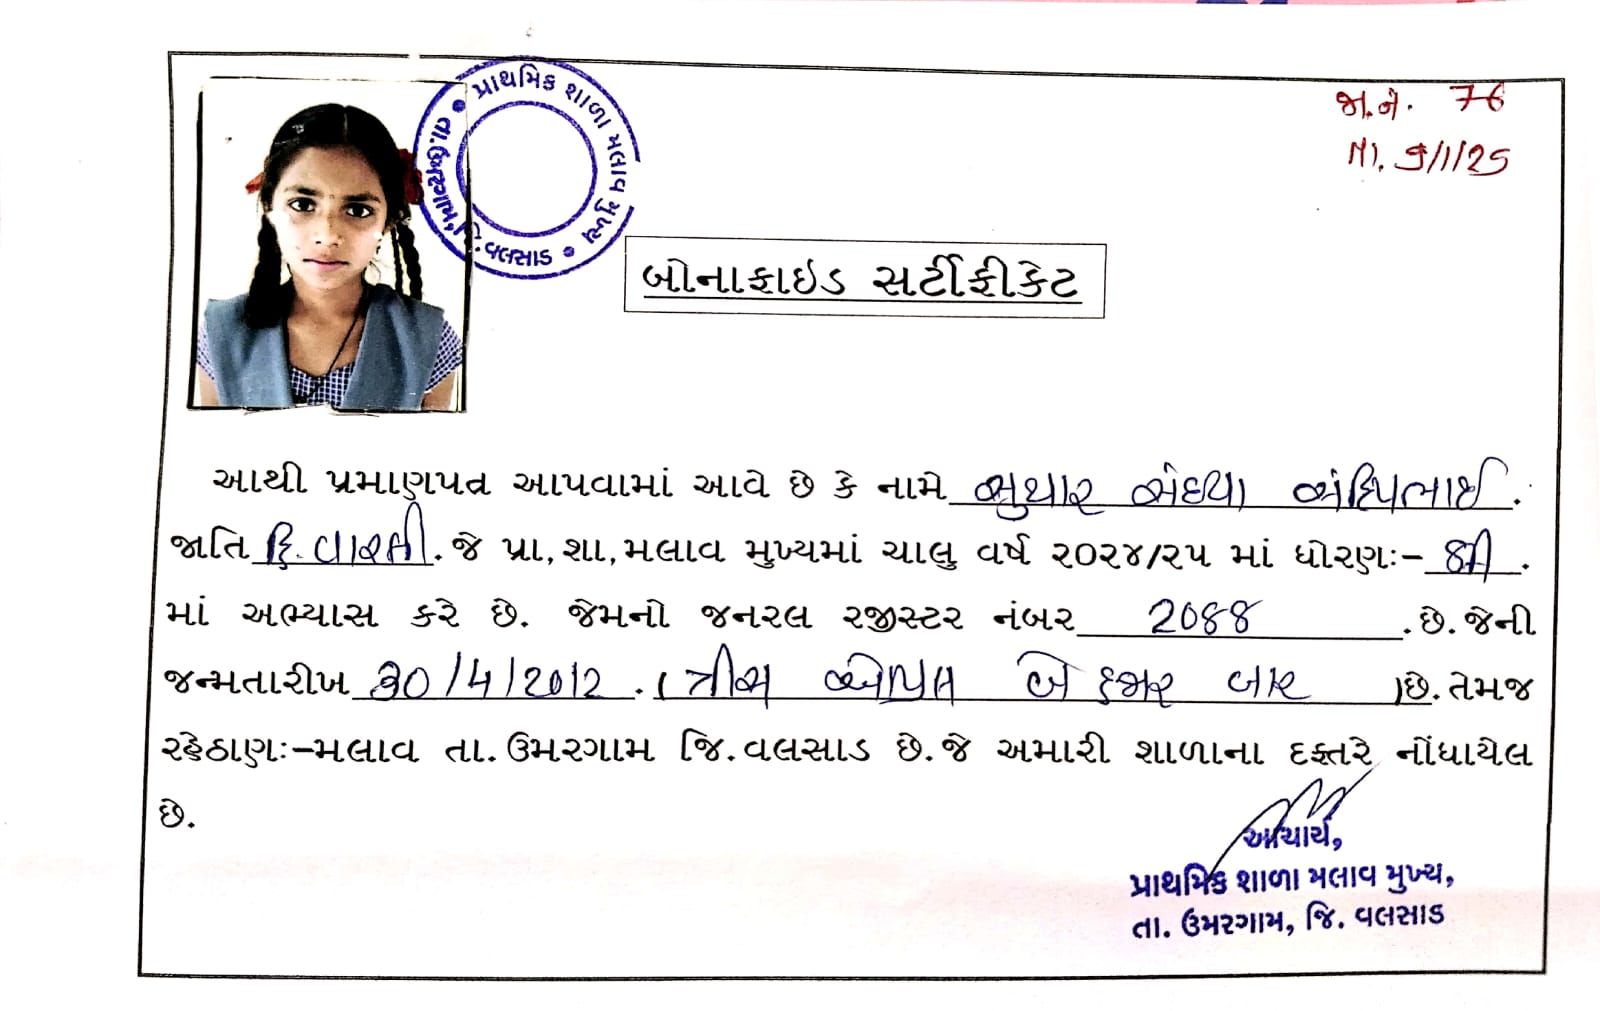 પ્રાથમિક શાળા મલાવ મુખ્ય
તા. ઉમરગામ, જિ. વલસાડ
જા.નં. 76
તા. 9/1/25
બોનાફાઇડ સર્ટીફીકેટ
આથી પ્રમાણપત્ર આપવામાં આવે છે કે નામે સુથાર સંધ્યા સંદિપભાઈ.
જાતિ હિ. વારલી. જે પ્રા,શા,મલાવ મુખ્યમાં ચાલુ વર્ષ ૨૦૨૪/૨૫ માં ધોરણઃ-
માં અભ્યાસ કરે છે. જેમનો જનરલ રજીસ્ટર નંબર 2088 .છે.જેની
જન્મતારીખ 30/4/2012 .( ત્રીસ એપ્રિલ બે હજાર બાર )છે.તેમજ
રહેઠાણઃ-મલાવ તા.ઉમરગામ જિ.વલસાડ છે.જે અમારી શાળાના દફ્તરે નોંધાયેલ
છે.
આચાર્ય,
પ્રાથમિક શાળા મલાવ મુખ્ય,
તા. ઉમરગામ, જિ. વલસાડ